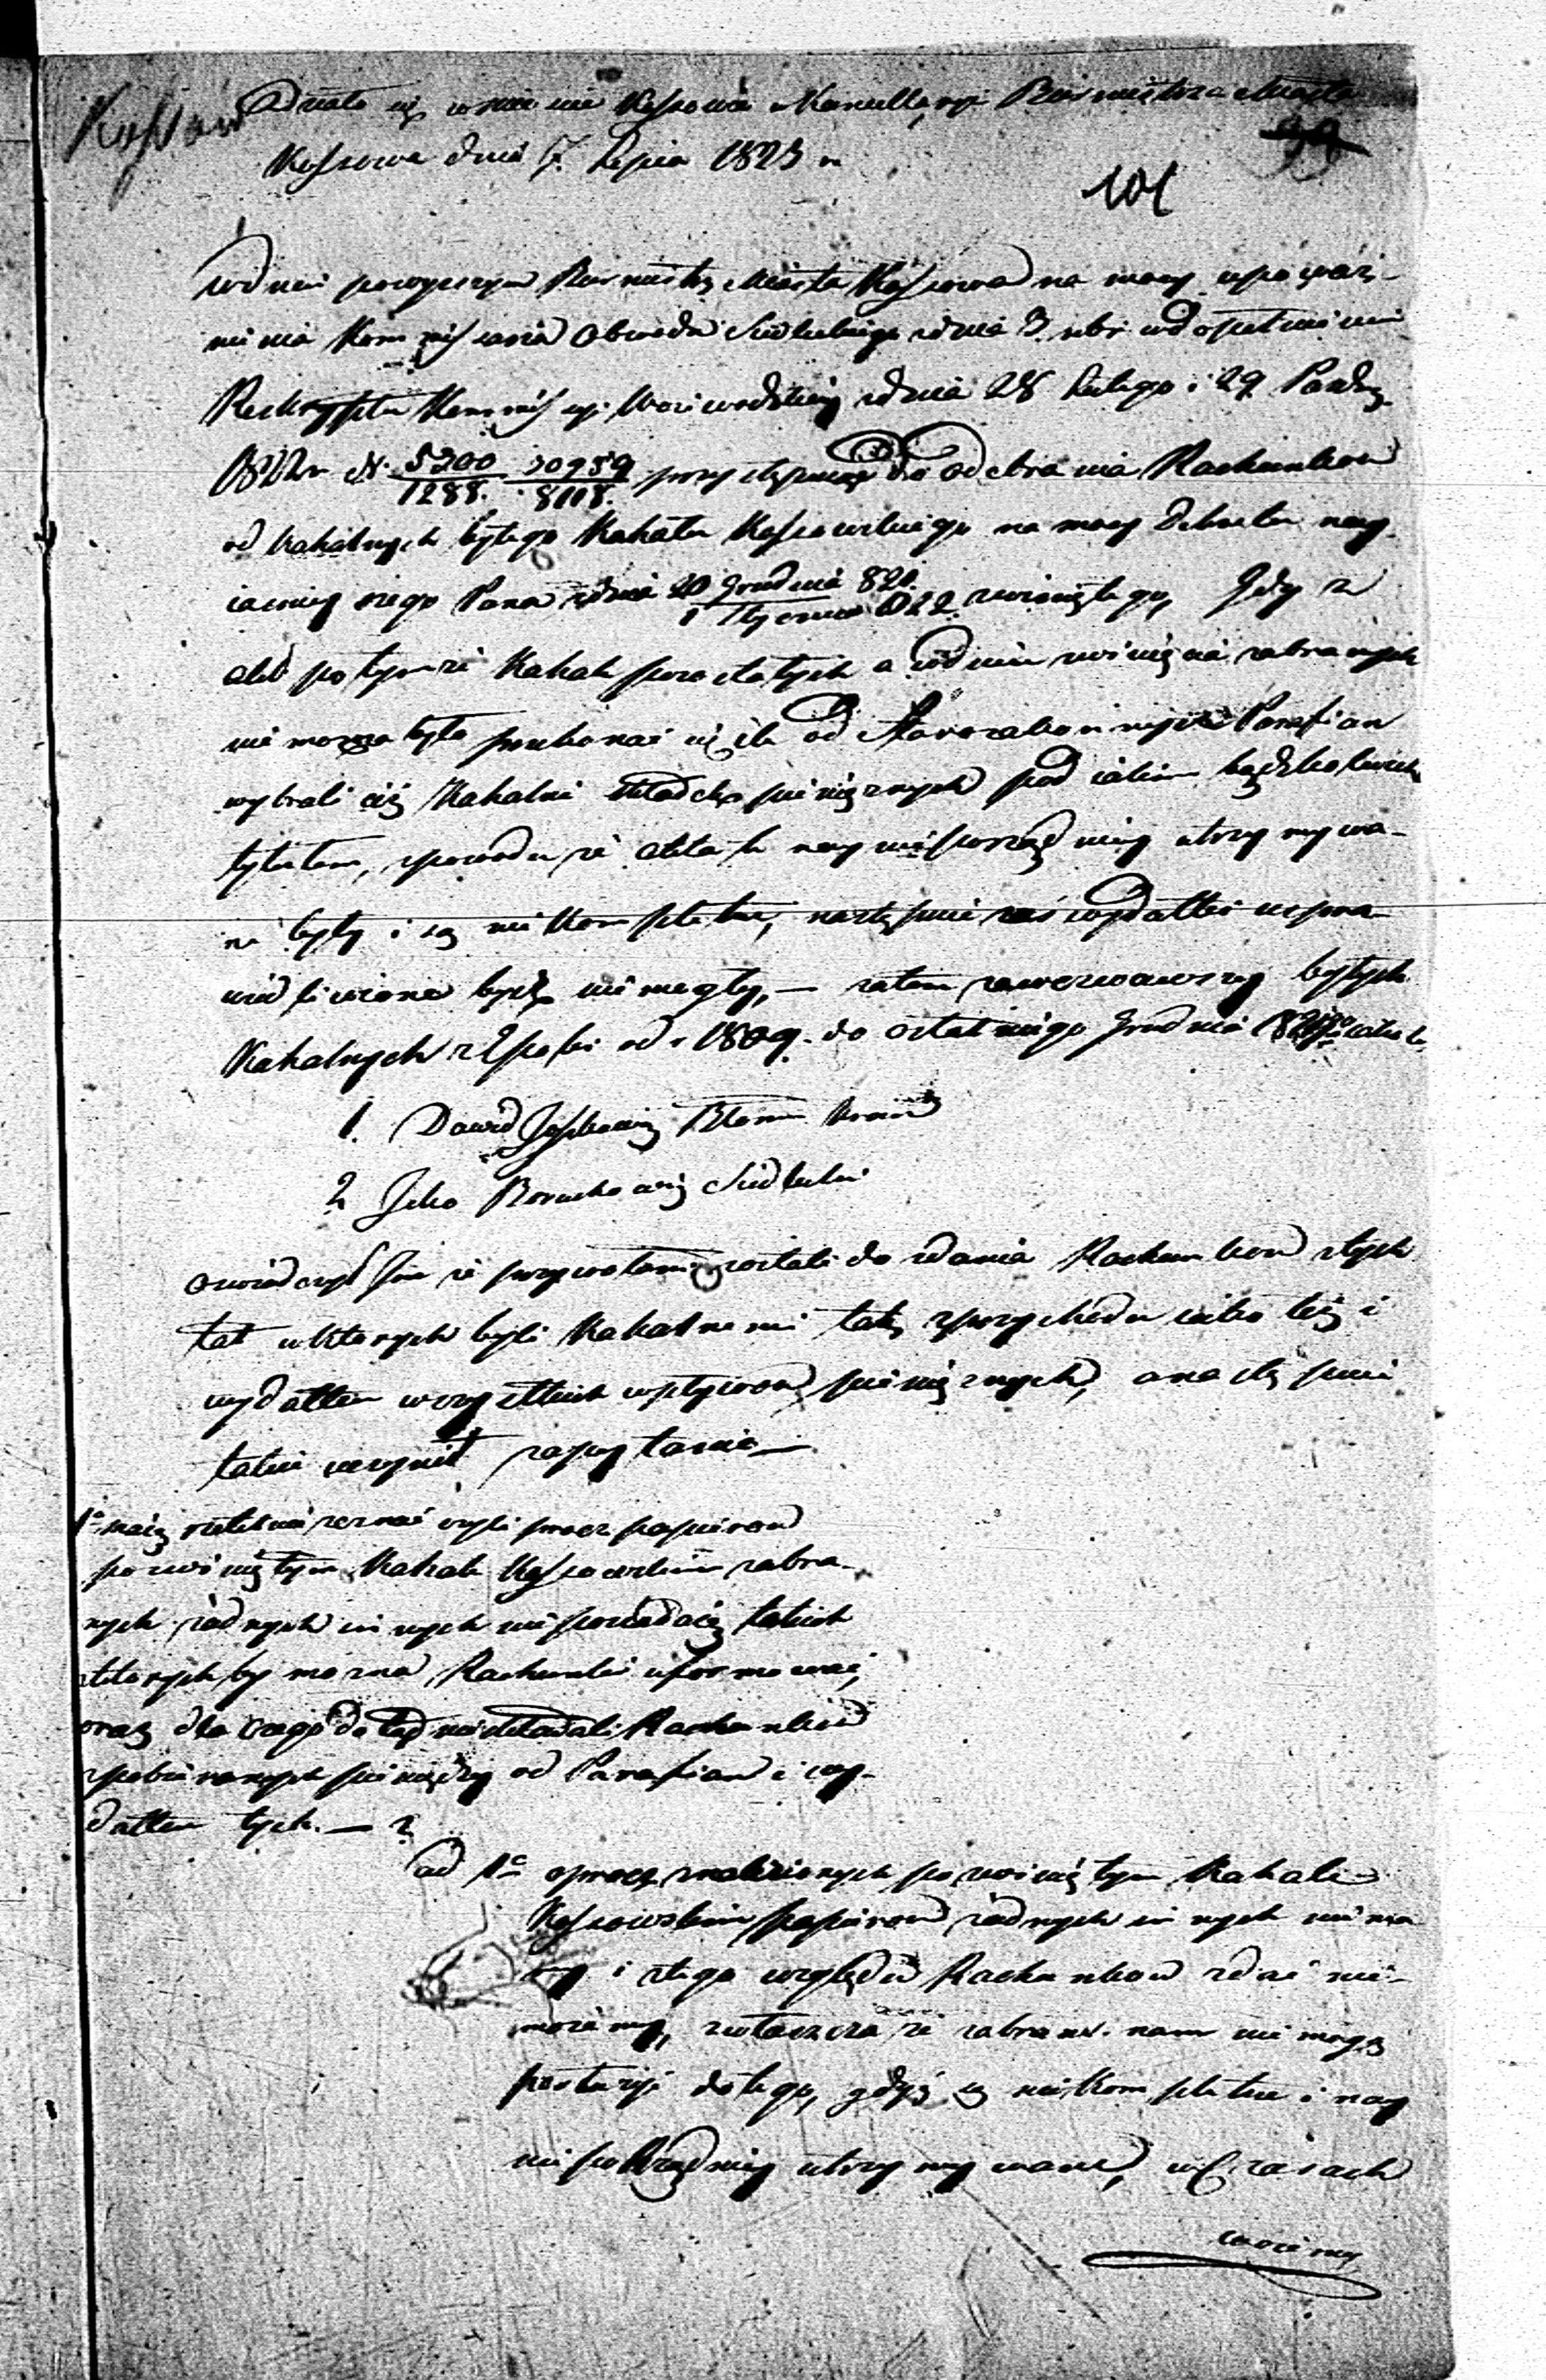 Kossów
Działo się w mieście Kossowie w Kancellaryi Burmistrza Miasta
99
Kossowa dnia 7. Lipca 1823 r.
101
W dniu powyższym Burmistrz Miasta Kossowa na mocy upoważ-
nienia Kommissarza Obwodu Siedleckiego z dnia 3. w dopełnieniu
Reskryptu Kommissyi Woiewodzkiey z dnia 28 Lutego i 29 Paźdz.
1822 r. N. 5200/1288. 30959/8118. przystępując do odebrania Rachunków
od Kahalnych byłego Kahału Kossowskiego na mocy Dekretu nay-
iaśnieyszego Pana z dnia 20 Grudnia 821./1 Stycznia 822. zwiniętego, Gdy z
akt po tymże Kahale pozostałych a w dniu zwinięcia zabranych
nie można było przekonać się ile od Starozakonnych Parafian
wybrali ciż Kahalni składek pieniężnych pod iakim bądźkolwiek
tytułem, z powodu że akta te naynieporządniey utrzymywa-
ne były i są niekompletne, następnie zaś wydatki uspra-
wiedliwione bydź nie mogły, — zatem zawezwawszy byłych
Kahalnych z Epoki od r. 1809. do ostatniego Grudnia 1821 iako to
1. Dawid Joskowicz Blum
2 Icko Boruchowicz Siedlecki
oświadczył im że przywołani zostali do zdania Rachunków z tych
lat w których byli Kahalnemi tak z przychodu iako też i
wydatku wszystkich wpływów pieniężnych, a następnie
takie uczynił zapytanie —
1o maią rzetelnie zeznać czyli prócz papierów
po zwiniętym Kahale Kossowskim zabra-
nych żadnych innych nie posiadaią takich
z których by można Rachunki uformować,
oraz dla czego dotąd nie składali Rachunków
z pobieranych pieniędzy od Parafian i wy-
datku tych. — ?
ad 1o oprócz znalezionych po zwiniętym Kahale
Kossowskim papierów żadnych innych nie ma-
my i z tego względu Rachunków zdać nie-
możemy, zwłaszcza że zabrane nam nie mogą
posłużyć do tego, gdyż są niekompletne i nay
nieporządniey utrzymywane, w czasach